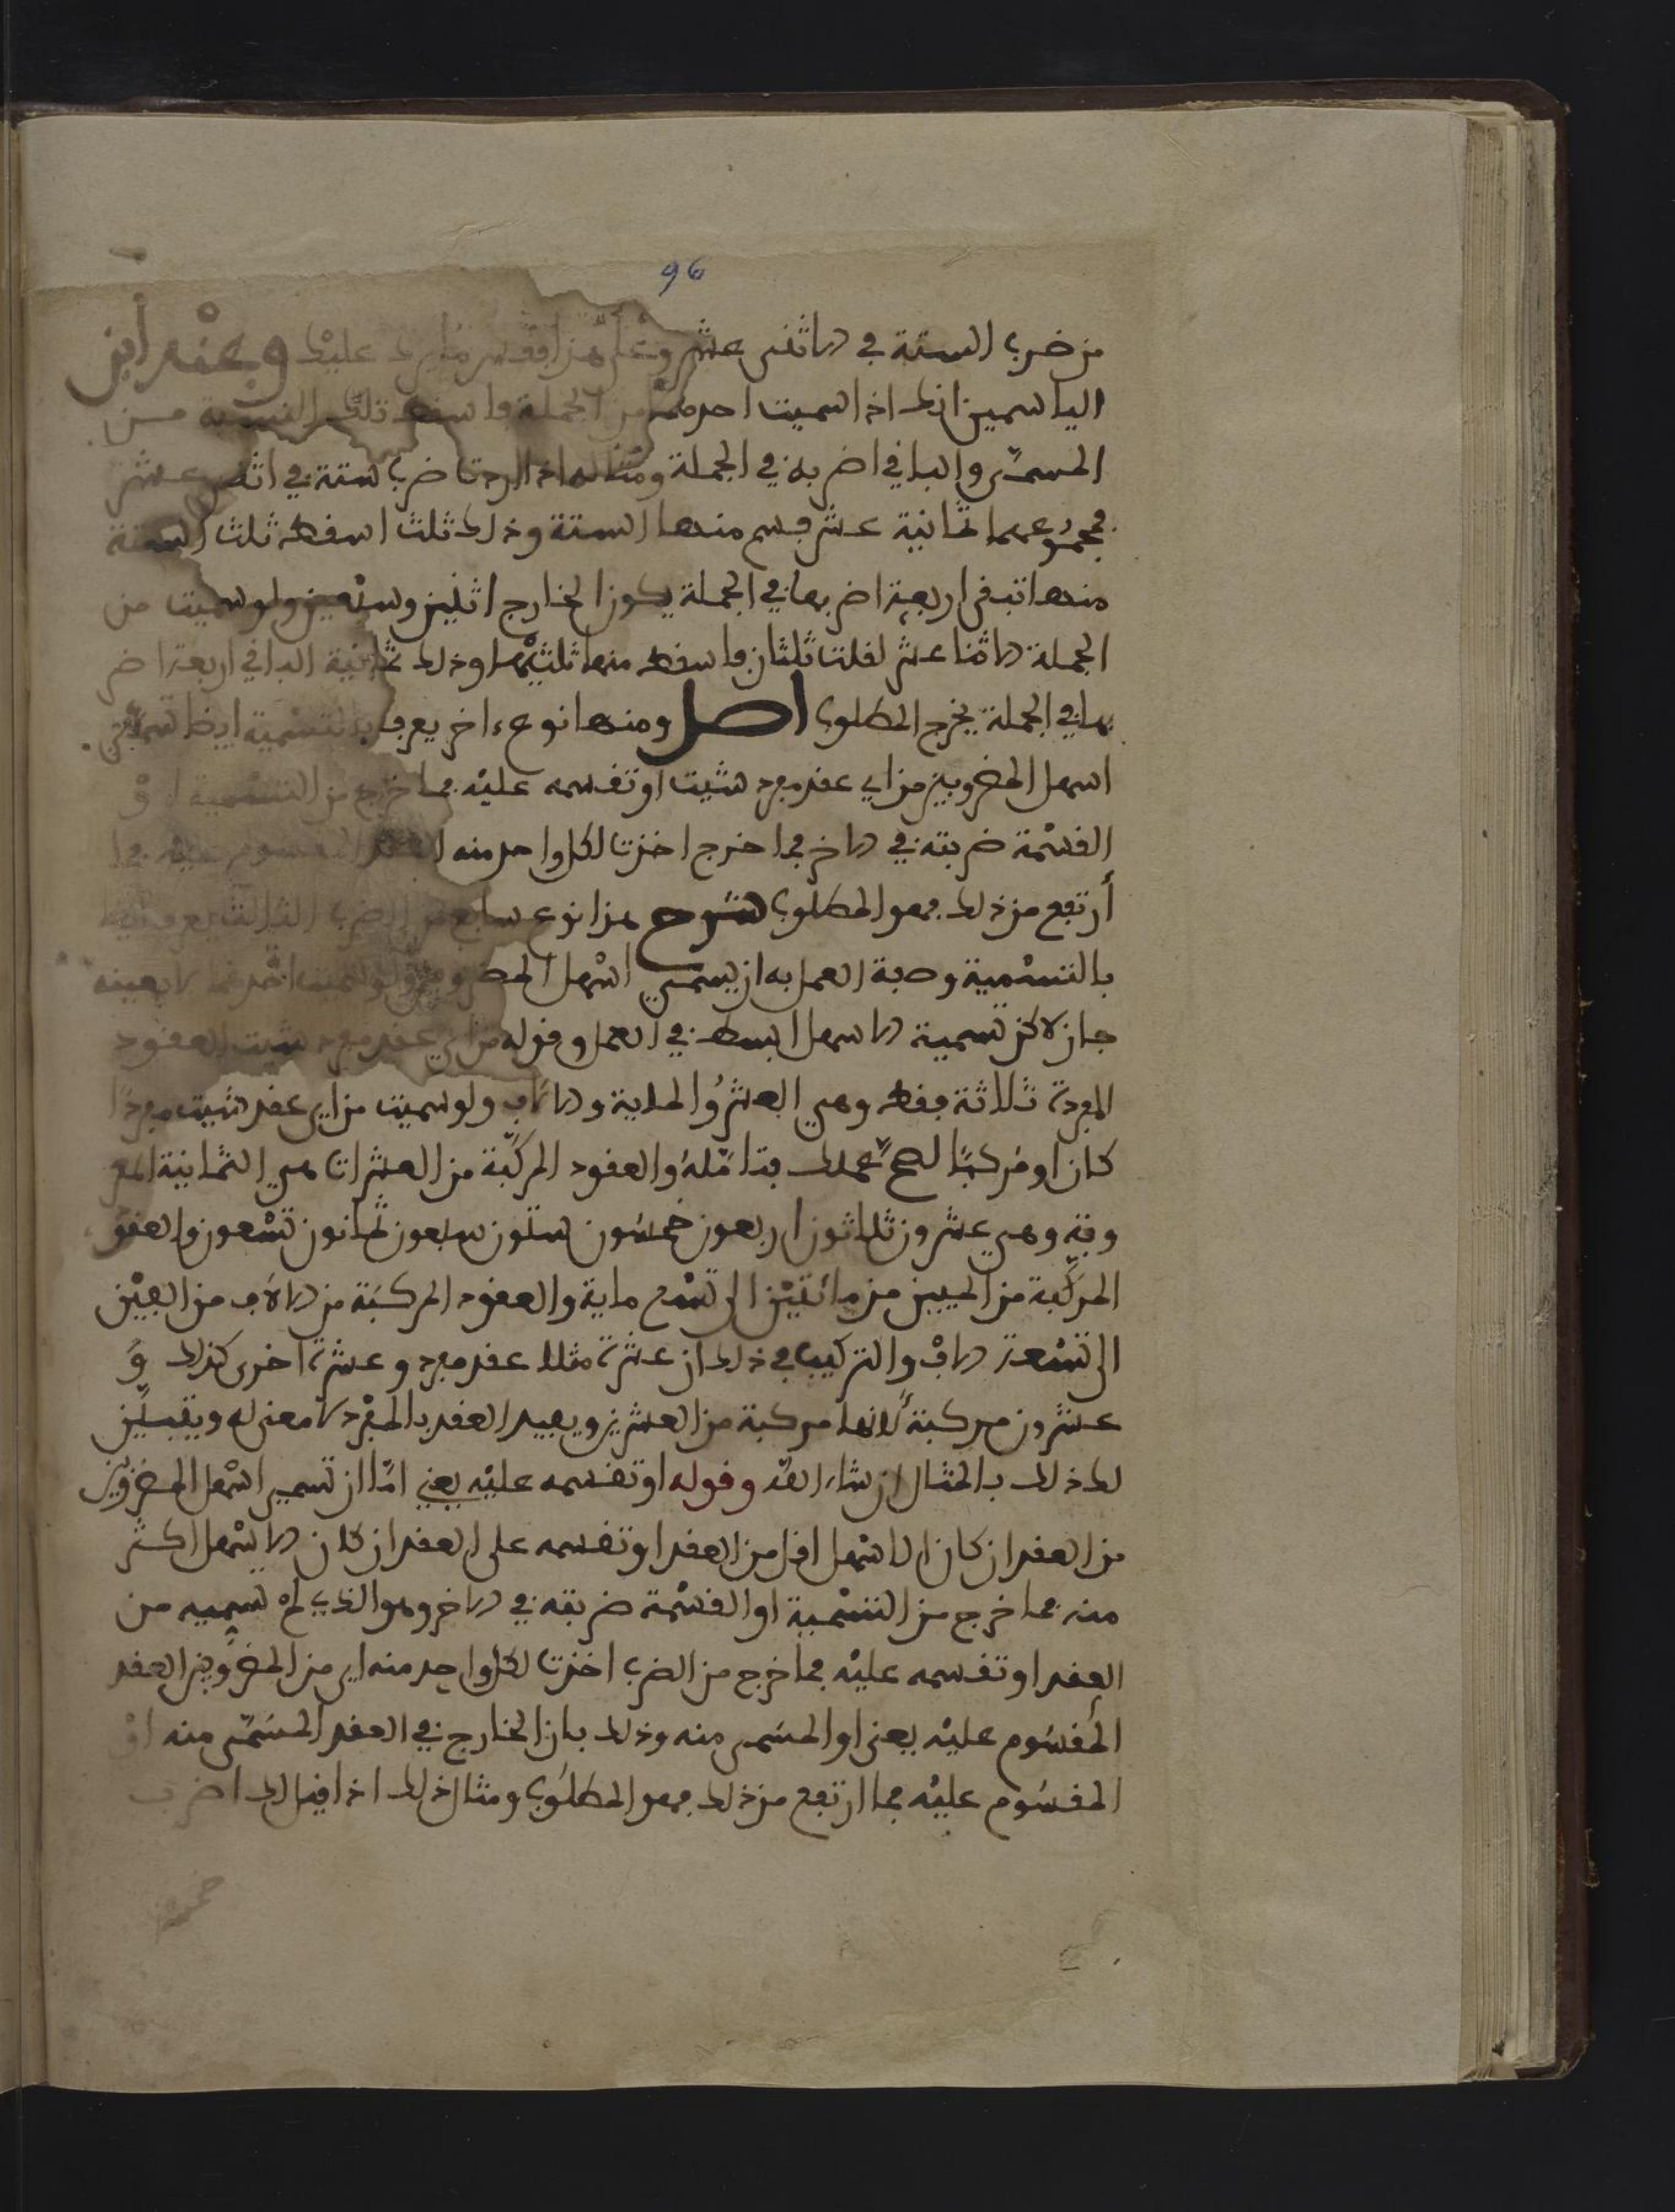 96
من ضرب الستة في الاثنى عشر وعلى هذا فقس ما يرد عليك وعند ابن
الياسمين انك اذا سميت احدهما من الجملة واسقط تلك النسبة من
المسمّى والباقي اضربه في الجملة ومثاله اذا اردت ضرب ستة في اثنى عشر
فمجموعهما ثمانية عشر فسم منها الستة وذلك ثلث اسقط ثلث الستة
منها تبقى اربعة اضربها في الجملة يكون الخارج اثنين وسبعين ولو سميت من
الجملة الاثنا عشر لقلت ثلثان فاسقط منها ثلثيْها وذلك ثمانية الباقي اربعة اضر
بها في الجملة يخرج المطلوب اصل ومنها نوع ءاخر يعرف بالتسمية ايضا تسمّي
اسهل المضروبين من اي عقد مفرد شيت او تقسمه عليْه فما خرج من التسمية اوْ
القسْمة ضربته في الاخر فما خرج اخذت لكل واحد منه العقد المقسوم عليه فما
أرتفع من ذلك فهو المطلوب شرح هذا نوع سابع من الضرب
بالتسْمية وصفة العمل به ان يسمي اسْهل المضروبين ولو سميت احدهما لا بعينه
جاز لاكن تسمية الاسهل ابسط في العمل وقوله من اي عقد مفرد شيت العقود
المفردة ثلاثة فقط وهي العشرُ والماية والالف ولو سميت من اي عقد شيت مفردًا
كان او مُركبًا لصحّ عملك فتامّلهُ والعقود المركّبة من العشرات هي الثمانية المعر
وفة وهي عشرون ثلاثون اربعون خمسون ستون سبعون ثمانون تسْعون والعقو
المركّبة من الميين من مائتيْن الى تسْع ماية والعقود المركبَة من الالاف من الفيْن
الى تسْعة الافْ والتركيب في ذلك ان عشرة مثلا عقد مفرد وعشرة اخرى كذلك وَ
عشرون مركبة لانها مركبة من العشرين وتقييد العقد بالمفْرد لا معنى له ويتبيّن
لك ذلك بالمثال ان شاء الله وقوله او تقسمه عليْه يعني امّا ان تسمي اسْهل المضروبين
من العقد ان كان الاسْهل اقل من العقد او تقسمه على العقد ان كان الاسْهل اكثر
منه فما خرج من التسْمية او القسْمة ضربته في الاخر وهو الذي لمْ تسميه من
العقد او تقسمه عليْه فما خرج من الضرب اخذت لكل واحد منه اي من المضروبين العقد
المَقسُوم عليْه يعنى او المسَمى منه وذلك بان الخارج في العقد المسَمّى منه اوْ
المقسُوم عليْه فما ارتفع من ذلك فهو المطلُوب ومثال ذلك اذا قيل لك اضرب